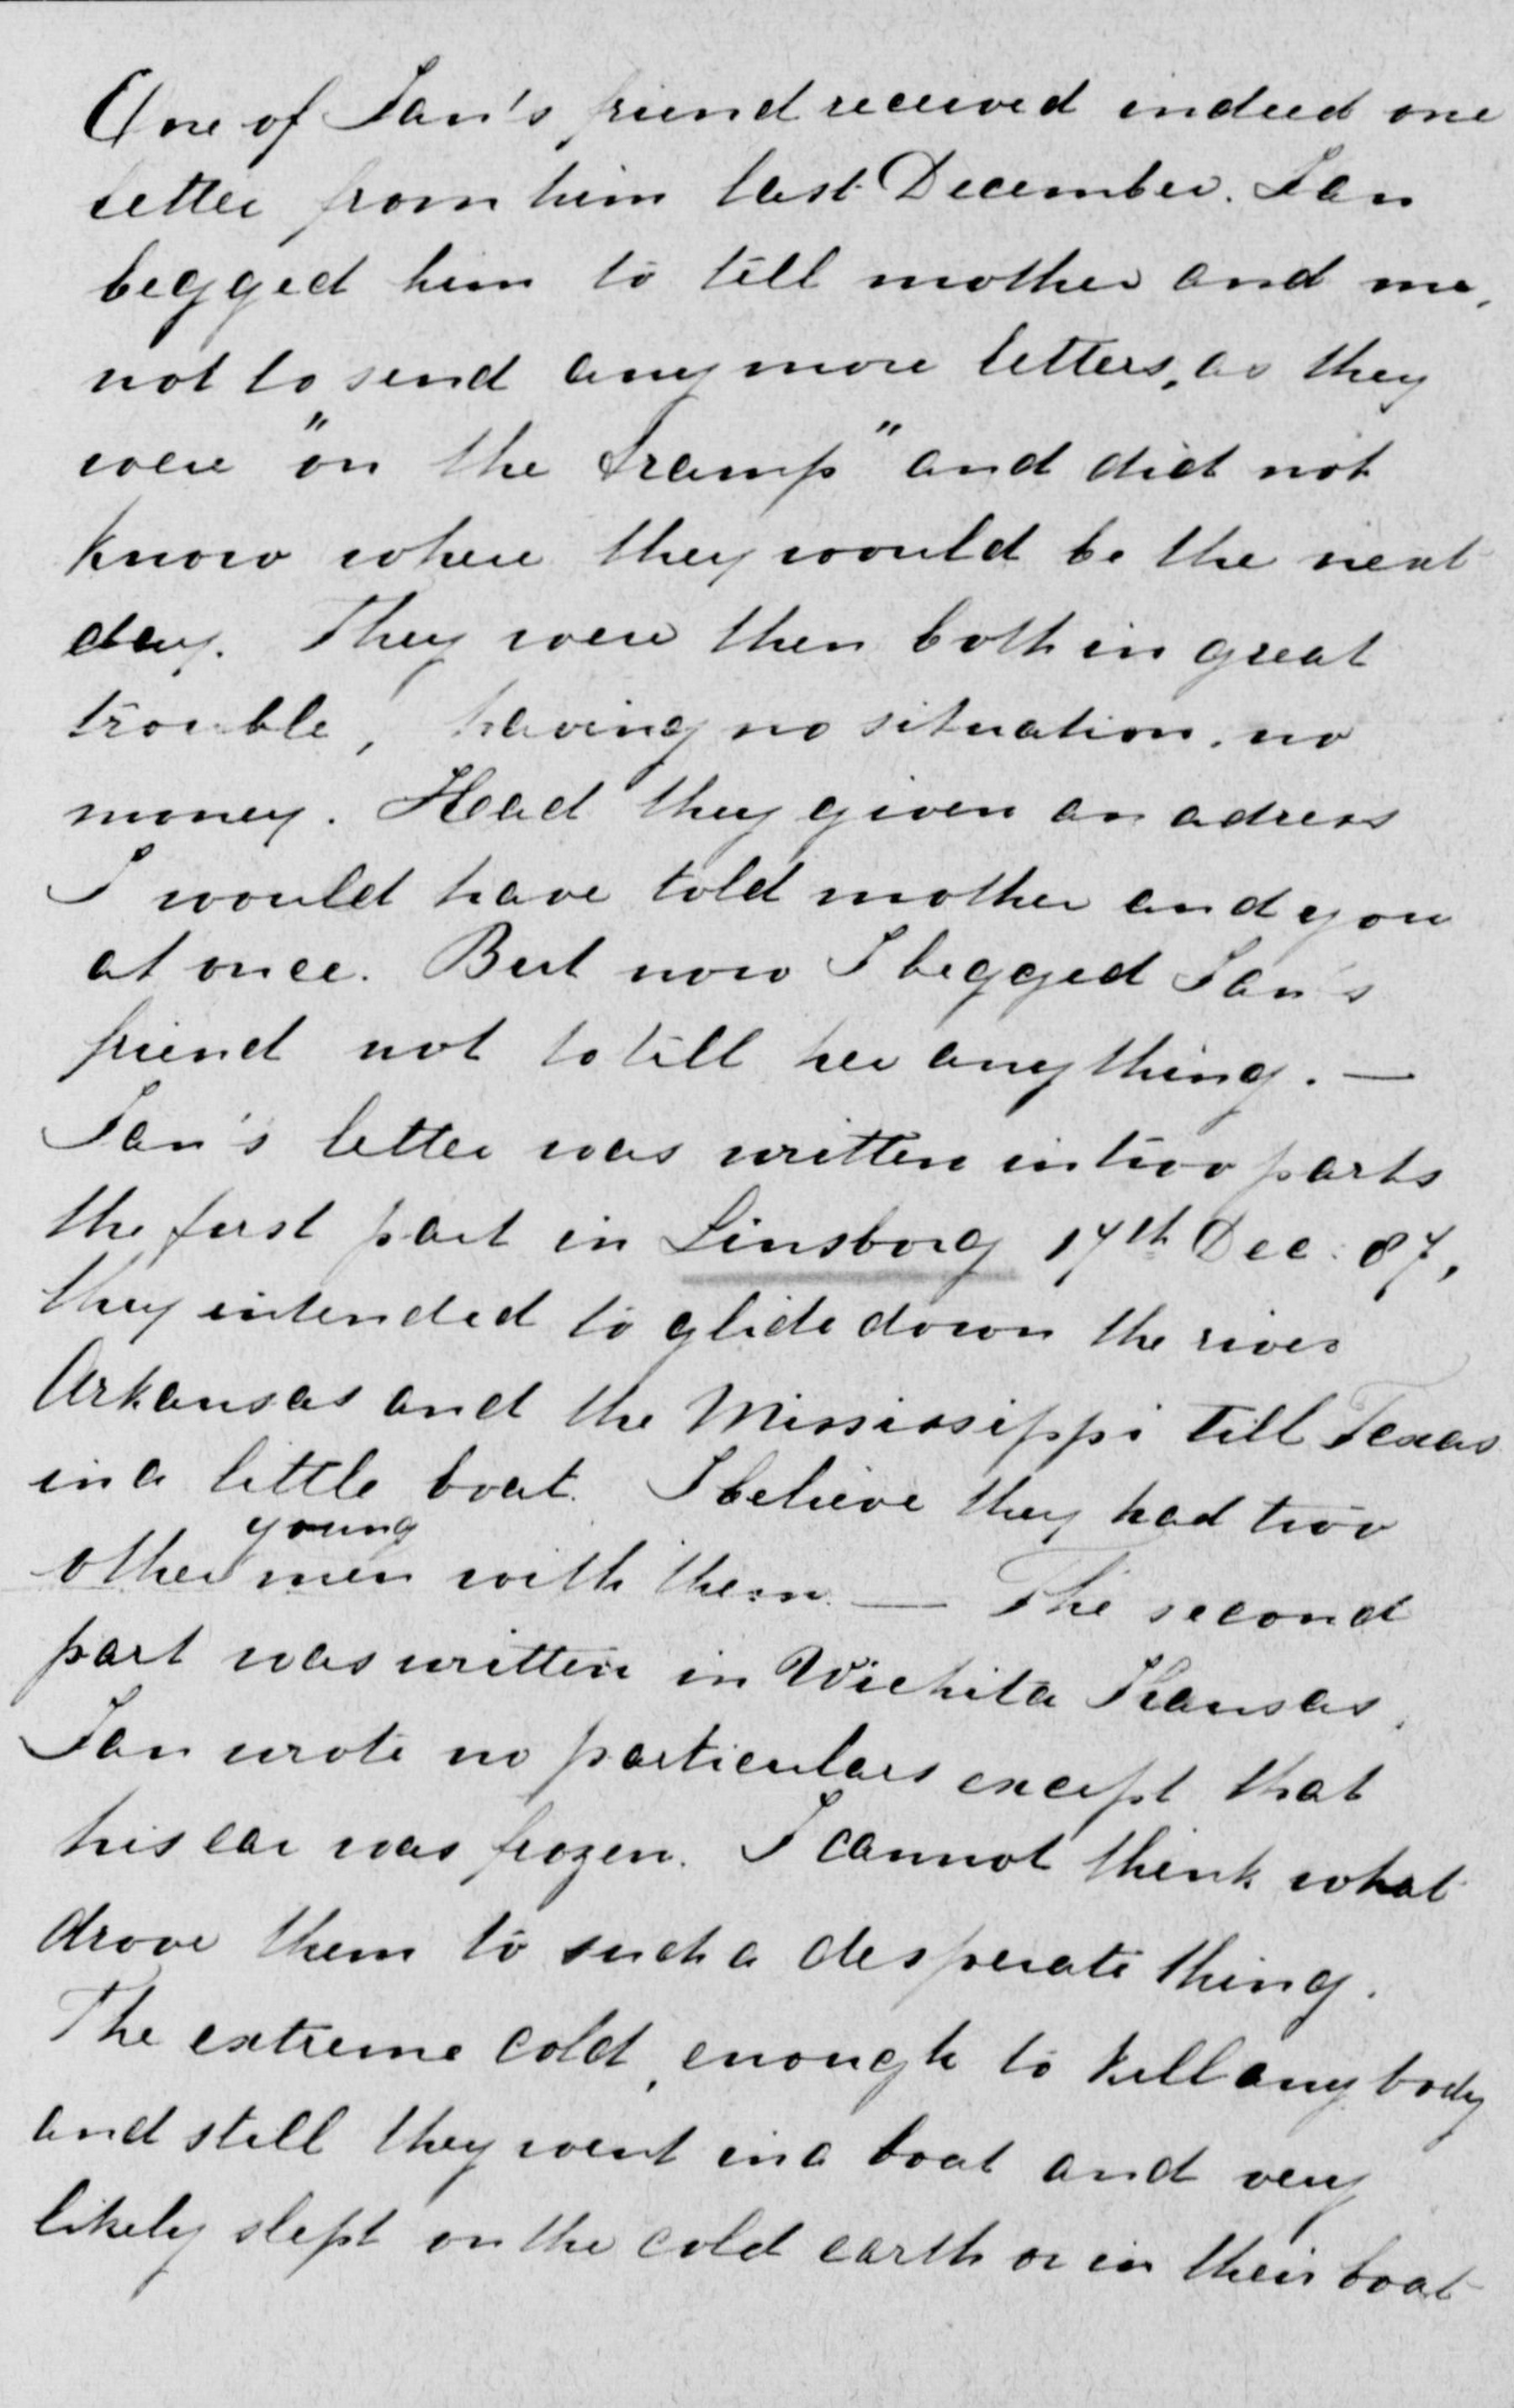 One of Jan's friend received indeed one
letter from him last December. Jan
begged him to tell mother and me,
not to send any more letters, as they
were "on the tramp" and did not
know where they would be the next
day. They were then both in great
trouble, having no situation, no
money. Head they given an adress
I would have told mother and you
at once. But now I begged Jan's
friend not to tell her anything. —
Jan's letter was written in two parts
the first part in Linsborg 17th Dec. 87,
they intended to glide down the river
Arkansas and the Mississippi till Texas
in a little boat. I believe they had two
other young men with them. — The second
part was written in Wichita Kansas.
Jan wrote no particulars except that
his ear was frozen. I cannot think what
drove them to such a desperate thing.
The extreme cold, enough to kill any body
and still they went in a boat and very
likely slept on the cold earth or in their boat